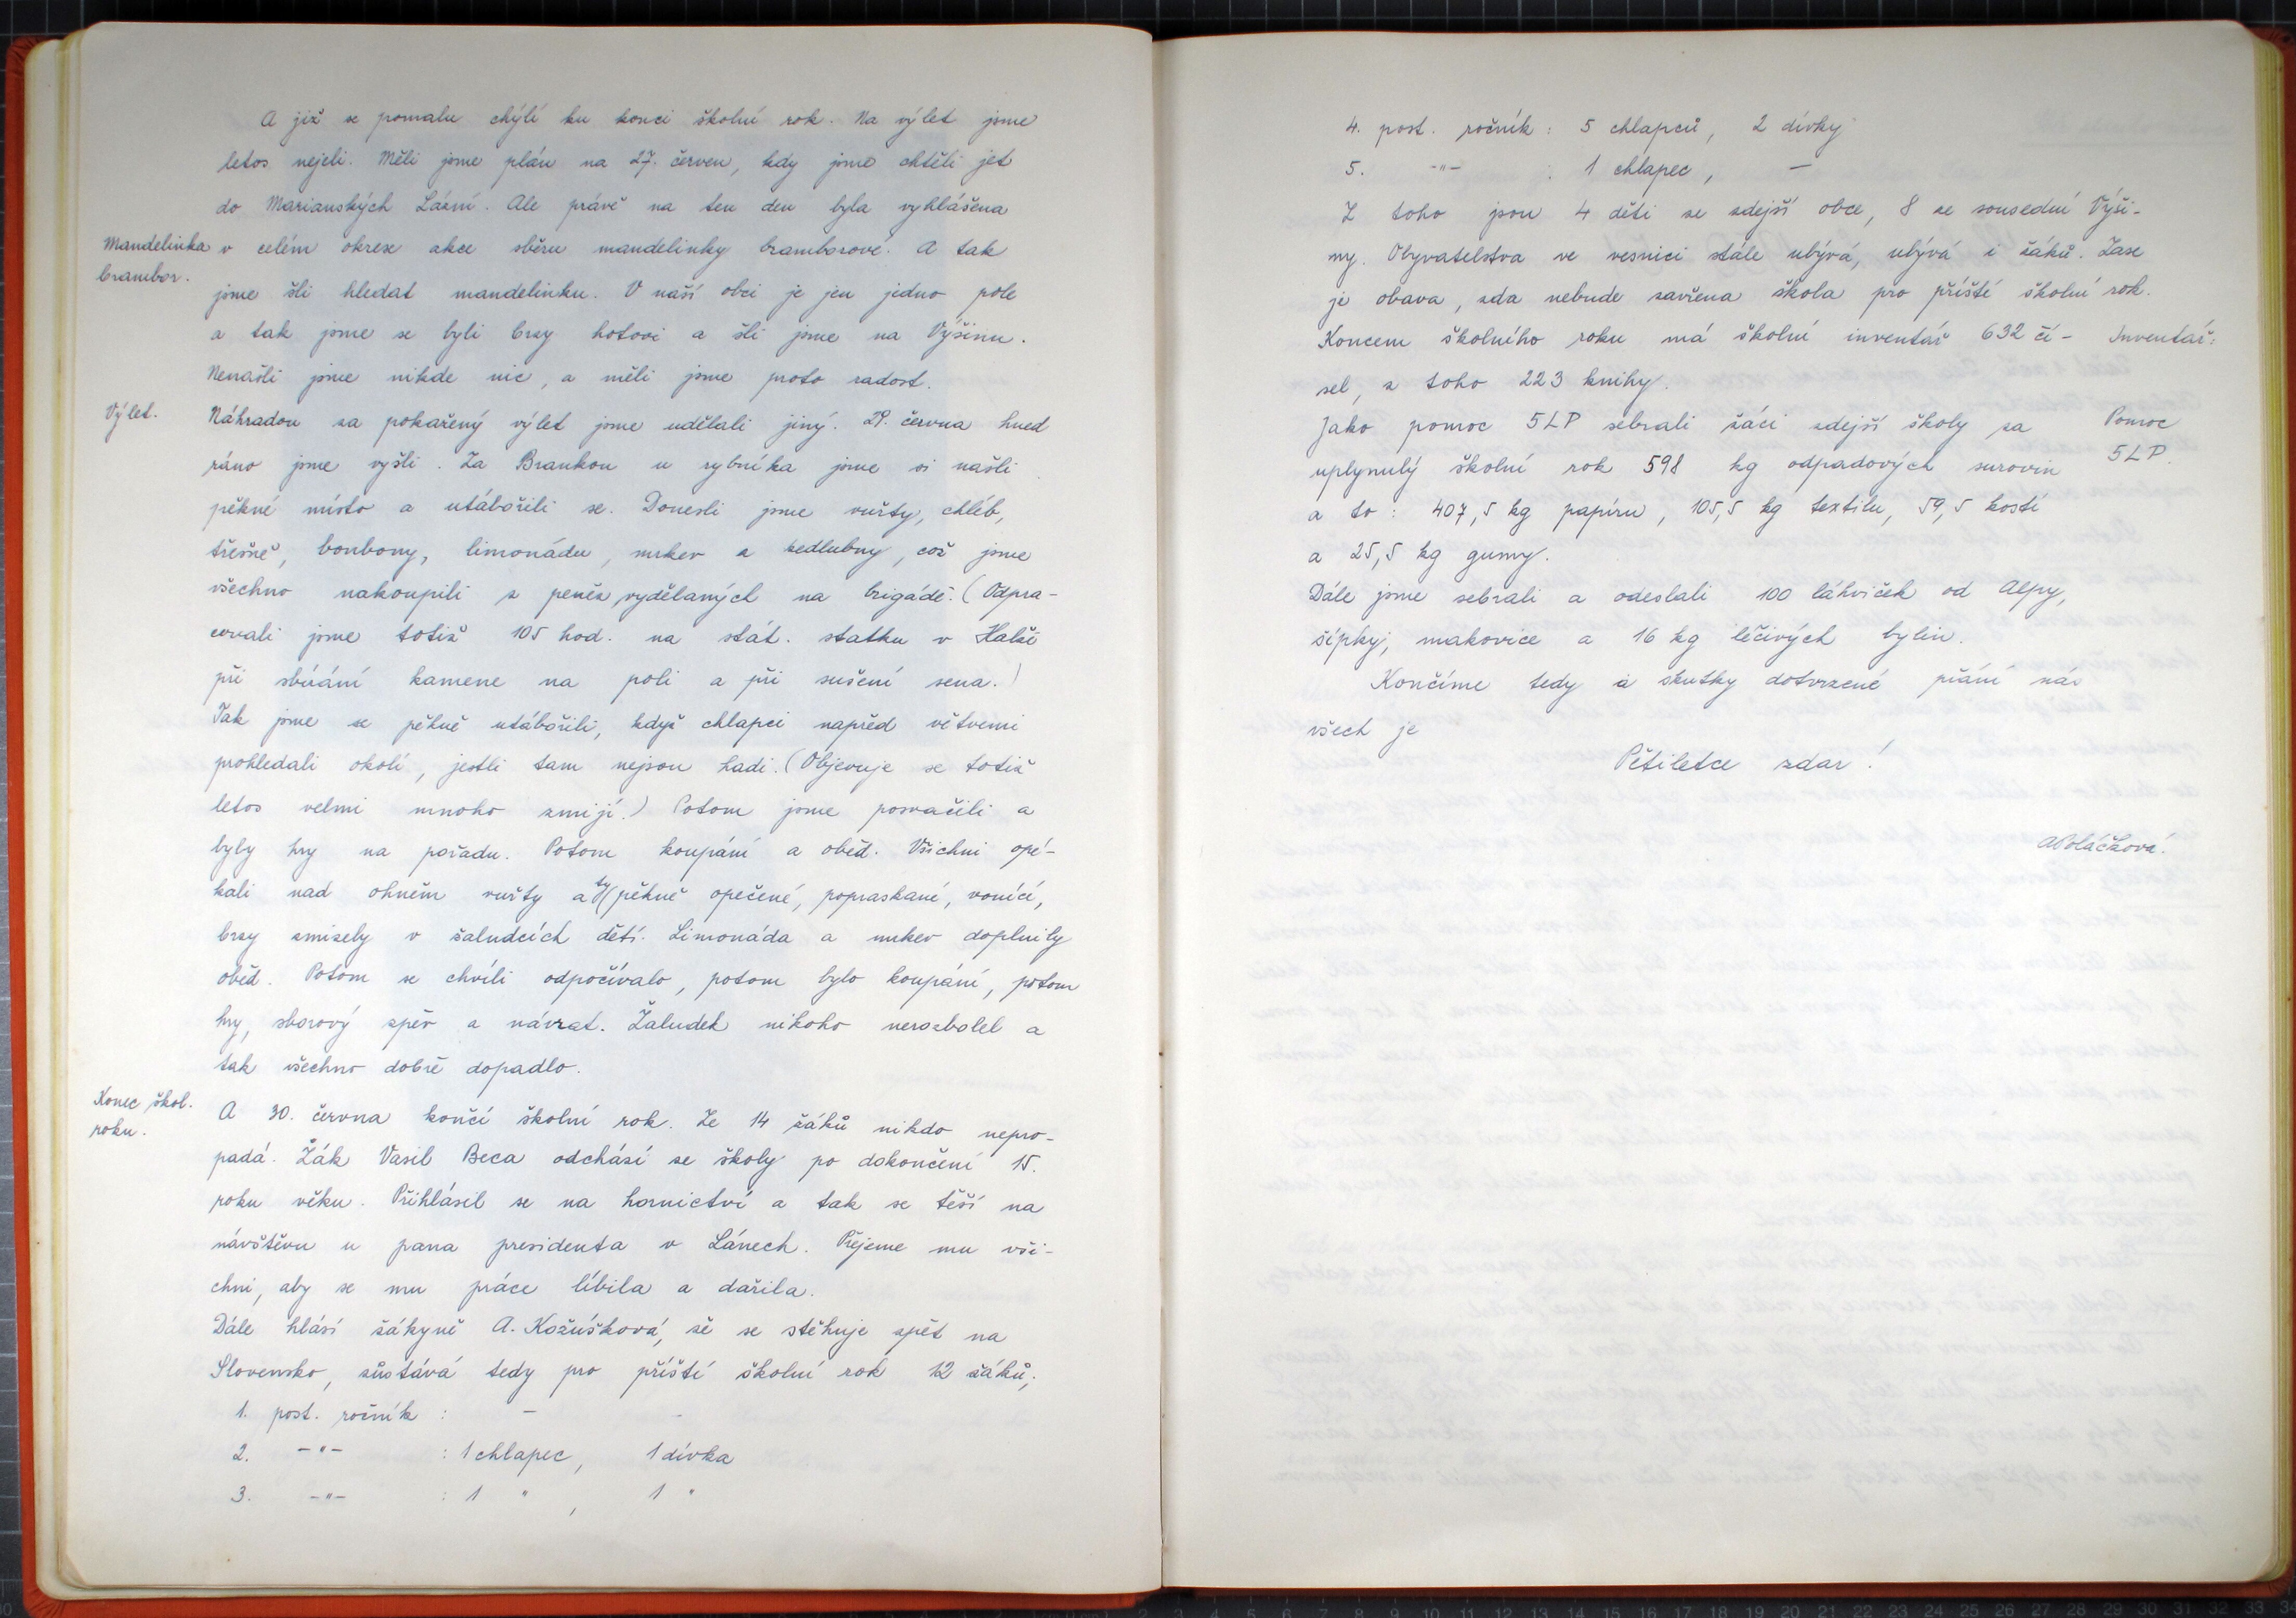 A již se pomalu chýlí ku konci školní rok. Na výlet jsme
letos nejeli. Měli jsme plán na 27. červen, kdy jsme chtěli jet
do Marianských Lázní. Ale právě na ten den byla vyhlášena
Mandelinka
brambor.
v celém okrese akce sběru mandelinky bramborové. A tak
jsme šli hledat mandelinku. V naší obci je jen jedno pole
a tak jsme se byli brzy hotovi a šli jsme na Výšinu.
Nenašli jsme nikde nic, a měli jsme proto radost.
Výlet.
Náhradou za pokažený výlet jsme udělali jiný. 29. června hned
ráno jsme vyšli. Za Brankou u rybníka jsme si našli
pěkné místo a utábořili se. Donesli jsme vuřty, chléb,
třešně, bonbony, limonádu, mrkev a kedlubny, což jsme
všechno nakoupili z peněz vydělaných na brigádě. (Odpra-
covali jsme totiž 105 hod. na stát. statku v Halži
při sbírání kamene na poli a při sušení sena.)
Tak jsme se pěkně utábořili, když chlapci napřed větvemi
prohledali okolí, jestli tam nejsou hadi. (Objevuje se totiž
letos velmi mnoho zmijí.) Potom jsme posvačili a
byly hry na pořadu. Potom koupání a oběd. Všichni opé-
kali nad ohněm vuřty a ty pěkně opečené, popraskané, vonící,
brzy zmizely v žaludcích dětí. Limonáda a mrkev doplnily
oběd. Potom se chvíli odpočívalo, potom bylo koupání, potom
hry, sborový zpěv a návrat. Žaludek nikoho nerozbolel a
tak všechno dobře dopadlo.
Konec škol.
roku.
A 30. června končí školní rok. Ze 14 žáků nikdo nepro-
padá. Žák Vasil Beca odchází ze školy po dokončení 15.
roku věku. Přihlásil se na hornictví a tak se těší na
návštěvu u pana presidenta v Lánech. Přejeme mu vši-
chni, aby se mu práce líbila a dařila.
Dále hlásí žákyně A. Kožúšková, že se stěhuje zpět na
Slovensko, zůstává tedy pro příští školní rok 12 žáků;
1. post. ročník : - -
2. -"- : 1 chlapec, 1 dívka
3. -"- : 1 " , 1 "
4. post. ročník : 5 chlapců, 2 dívky
5. -"- : 1 chlapec, -
Z toho jsou 4 děti ze zdejší obce, 8 ze sousední Výši-
ny. Obyvatelstva ve vesnici stále ubývá, ubývá i žáků. Zase
je obava, zda nebude zavřena škola pro příští školní rok.
Koncem školního roku má školní inventář 632 čí-
Inventář:
sel, z toho 223 knihy.
Jako pomoc 5LP sebrali žáci zdejší školy za
Pomoc
5LP.
uplynulý školní rok 598 kg odpadových surovin
a to: 407,5 kg papíru, 105,5 kg textilu, 59,5 kostí
a 25,5 kg gumy.
Dále jsme sebrali a odeslali 100 láhviček od Alpy,
šípky, makovice a 16 kg léčivých bylin.
Končíme tedy a skutky dotvrzené přání nás
všech je
Pětiletce zdar!
APoláčková.